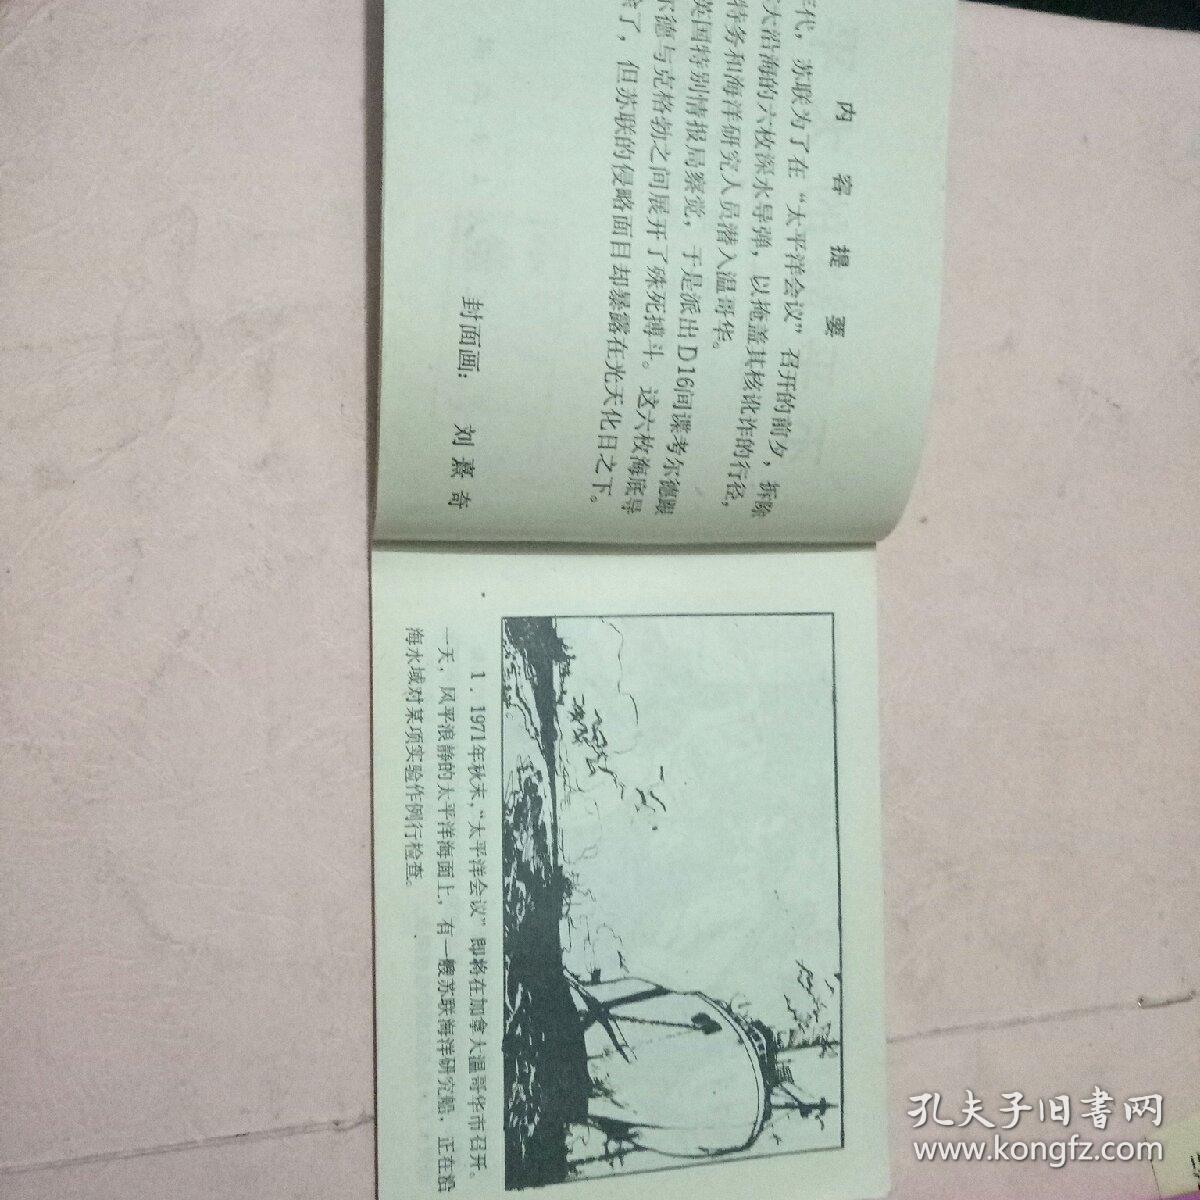 内容提要
年代，苏联为了在“太平洋会议”召开的前夕，拆除
大沿海的六枚深水导弹，以掩盖其核讹诈的行径，
特务和海洋研究人员潜入温哥华。
英国特别情报局察觉，于是派出D16间谍考尔德跟
尔德与克格勃之间展开了殊死搏斗。这六枚海底导
除了，但苏联的侵略面目却暴露在光天化日之下。
封面画：刘熹奇
1．1971年秋末，“太平洋会议”即将在加拿大温哥华市召开。
一天，风平浪静的太平洋海面上，有一艘苏联海洋研究船，正在沿
海水域对某项实验作例行检查。
孔夫子旧書网
www.kongfz.com